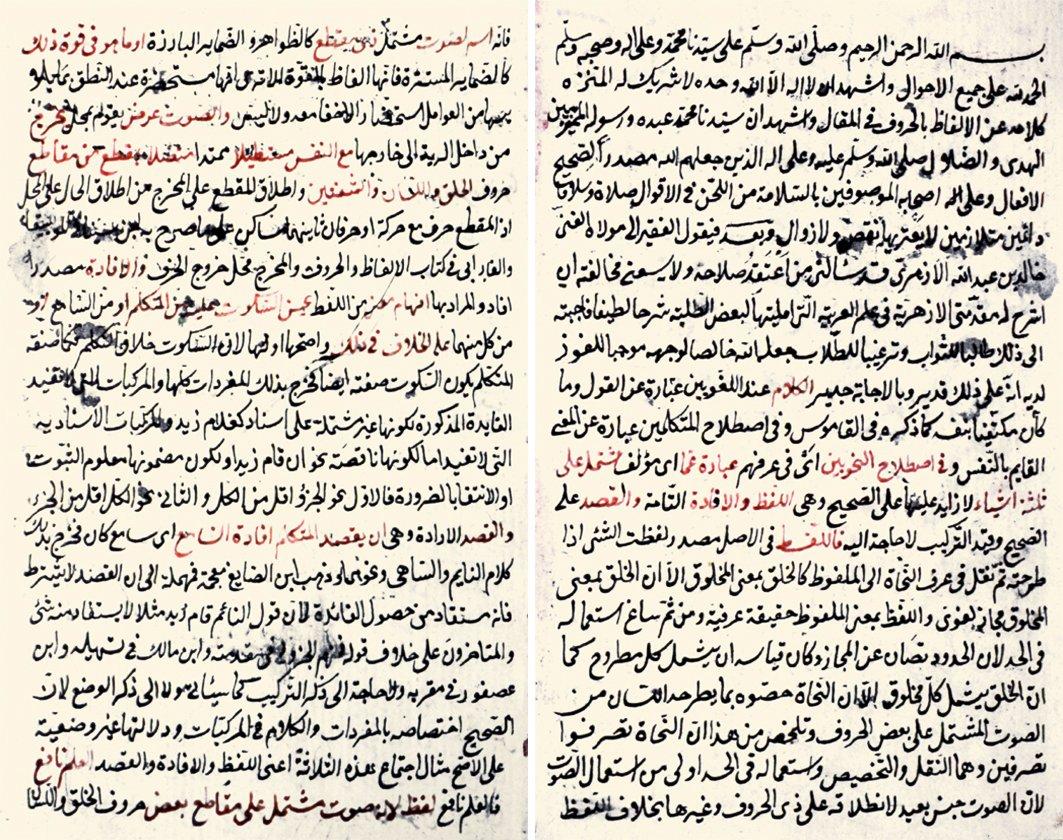 بسم الله الرحمن الرحيم وصلى الله وسلم على سيدنا محمد وعلى اله وصحبه وسلم
الحمد لله على جميع الاحوال واشهد ان لا اله الا الله وحده لا شريك له المنزه
كلامه عن الالفاظ بالحروف في المقال واشهد ان سيدنا محمد عبده ورسوله
الهدى والضلال صلى الله وسلم عليه وعلى اله الذين جعلهم الله مصدرا لتصحيح
الافعال وعلى اصحابه الموصوفين بالسلامة من اللحن في الاقوال صلاة وسلاما
دائمين متلازمين لا يعتريهما نقص ولا زوال وبعد فيقول الفقير الى مولاه الغنى
خالد بن عبد الله الازهرى قد سألنى من اعتقد صلاحه ولا يسعنى مخالفته ان
اشرح له مقدمتى الازهرية في علم العربية التى امليتها لبعض الطلبة شرحا لطيفا فاجبته
الى ذلك طالبا للثواب وترغيبا للطلاب جعله الله خالصا لوجهه موجبا للفوز
لديه انه على ذلك قدير وبالاجابة جدير الكلام عند اللغويين عبارة عن القول وما
كان مكتفيا بنفسه كما ذكره في القاموس وفي اصطلاح المتكلمين عبارة عن المعنى
القايم بالنفس وفي اصطلاح النحويين اى في عرفهم عبارة عما اى مؤلف مشتمل على
ثلثة اشياء لا زايد عليها على الصحيح وهى اللفظ والافادة التامة والقصد على
الصحيح وقيد التركيب لا حاجة اليه فاللفظ في الاصل مصدر لفظت الشئ اذا
طرحته ثم نقل في عرف النحاة الى الملفوظ كالخلق بمعنى المخلوق الا ان الخلق بمعنى
المخلوق مجاز لغوى واللفظ بمعنى الملفوظ حقيقة عرفية ومن ثم ساغ استعماله
في الحد لان الحدود تصان عن المجاز وكان قياسه ان يشمل كل مطروح كما
ان الخلق يشمل كل مخلوق الا ان النحاة خصوه بما يطرحه اللسان من
الصوت المشتمل على بعض الحروف وتلخص من هذا ان النحاة تصرفوا
تصرفين وهما النقل والتخصيص واستعماله في الحد اولى من استعمال الصوت
لان الصوت جنس بعيد لانطلاقه على ذى الحروف وغيرها بخلاف اللفظ
فانه اسم لصوت مشتمل ذى مقطع كالظواهر والضماير البارزة او ما هو في قوة ذلك
كالضماير المستترة فانها الفاظ بالقوة مستحضرة عند النطق بما
من العوامل استحضارا لا خفا معه ولا لبس والصوت عرض يقوم بمحل يخرج
من داخل الرية الى خارجها مع النفس مستطيلا ممتدا متصلا بمقطع من مقاطع
حروف الحلق واللسان والشفتين واطلاق المقطع على المخرج من اطلاق الحال على المحل
اذ المقطع حرف مع حركة او حرفان ثانيهما ساكن على ما صرح به ابن سينا
والفارابى في كتاب الالفاظ والحروف والمخرج محل خروج الحرف والافادة مصدر
افاد والمراد بها افهام معنى من اللفظ يحسن السكوت عليه من المتكلم او من السامع او
من كل منهما على الخلاف في ذلك واصحها اولها لان السكوت خلاف التكلم فكما صفته
المتكلم يكون السكوت صفته ايضا فخرج بذلك المفردات كلها والمركبات التى لا تفيد
الفايدة المذكورة لكونها غير مشتملة على اسناد كغلام زيد والمركبات الاسنادية
التى لا تفيد اما لكونها ناقصة نحو ان قام زيد او لكون مضمونها معلوم الثبوت
او الانتفا بالضرورة فالاول نحو الجزؤ اقل من الكل والثانى نحو الكل اقل من الجزء
والقصد الارادة وهى ان يقصد المتكلم افادة السامع اى سامع كان فخرج بذلك
كلام النايم والساهى ونحوهما وذهب ابن الضايع الى ان القصد لا يشترط
فانه مستفاد من حصول الفائدة لان قول النائم قام زيد مثلا لا يستفاد منه شئ
والمتاخرون على خلاف قوله الجزولى في مقدمته وابن مالك في تسهيله وابن
عصفور في مقربه ولا حاجة الى ذكر التركيب كما سيأتى ولا الى ذكر الوضع لان
الصحيح اختصاصه بالمفردات والكلام في المركبات ودلالتها غير وضعية
على الاصح مثال اجتماع هذه الثلاثة اعنى اللفظ والافادة والقصد العلم نافع
فالعلم نافع لفظ لانه صوت مشتمل على مقاطع بعض حروف الحلق واللسان